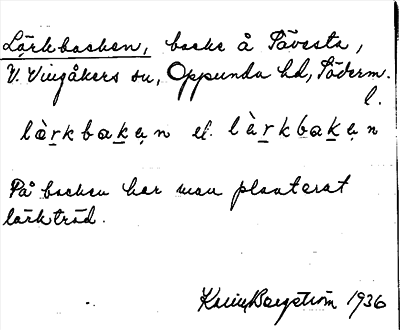 Lärkbacken, backe å Tåvesta,
V. Vingåkers sn, Oppunda hd, Söderm.
l.
lὰrkbakan el. lὰrkbakan
På backen har man planterat
lärkträd.
Karin Bergström 1936